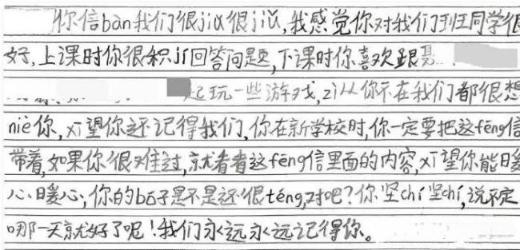 你信bān我们很jiǔ很jiǔ,我感觉你对我们班同学很
好,上课时你很积jí回答问题,下课时你喜欢跟
起玩一些游戏,你不在我们都很想
niè你,希望你还记得我们,你在新学校时,你一定要把这fēng信
带着,如果你很难过,就看看这fēng信里面的内容,希望你能暖
心暖心,你的bó子是不是还很téng,对吧?你坚chí坚chí,说不定
哪一天就好了呢!我们永远永远记得你。